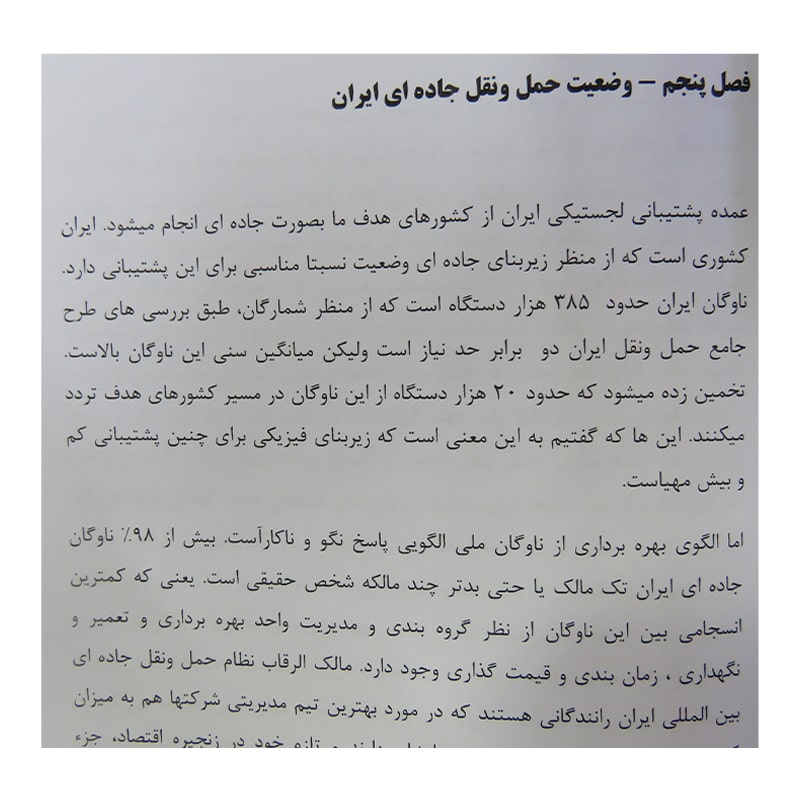 فصل پنجم – وضعیت حمل ونقل جاده ای ایران
عمده پشتیبانی لجستیکی ایران از کشورهای هدف ما بصورت جاده ای انجام میشود. ایران
کشوری است که از منظر زیربنای جاده ای وضعیت نسبتا مناسبی برای این پشتیبانی دارد.
ناوگان ایران حدود ۳۸۵ هزار دستگاه است که از منظر شمارگان، طبق بررسی های طرح
جامع حمل ونقل ایران دو برابر حد نیاز است ولیکن میانگین سنی این ناوگان بالاست.
تخمین زده میشود که حدود ۲۰ هزار دستگاه از این ناوگان در مسیر کشورهای هدف تردد
میکنند. این ها که گفتیم به این معنی است که زیربنای فیزیکی برای چنین پشتیبانی کم
و بیش مهیاست.
اما الگوی بهره برداری از ناوگان ملی الگویی پاسخ نگو و ناکارآست. بیش از ۹۸٪ ناوگان
جاده ای ایران تک مالک یا حتی بدتر چند مالکه شخص حقیقی است. یعنی که کمترین
انسجامی بین این ناوگان از نظر گروه بندی و مدیریت واحد بهره برداری و تعمیر و
نگهداری ، زمان بندی و قیمت گذاری وجود دارد. مالک الرقاب نظام حمل ونقل جاده ای
بین المللی ایران رانندگانی هستند که در مورد بهترین تیم مدیریتی شرکتها هم به میزان
دارند و تازه خود در زنجیره اقتصاد، جزء